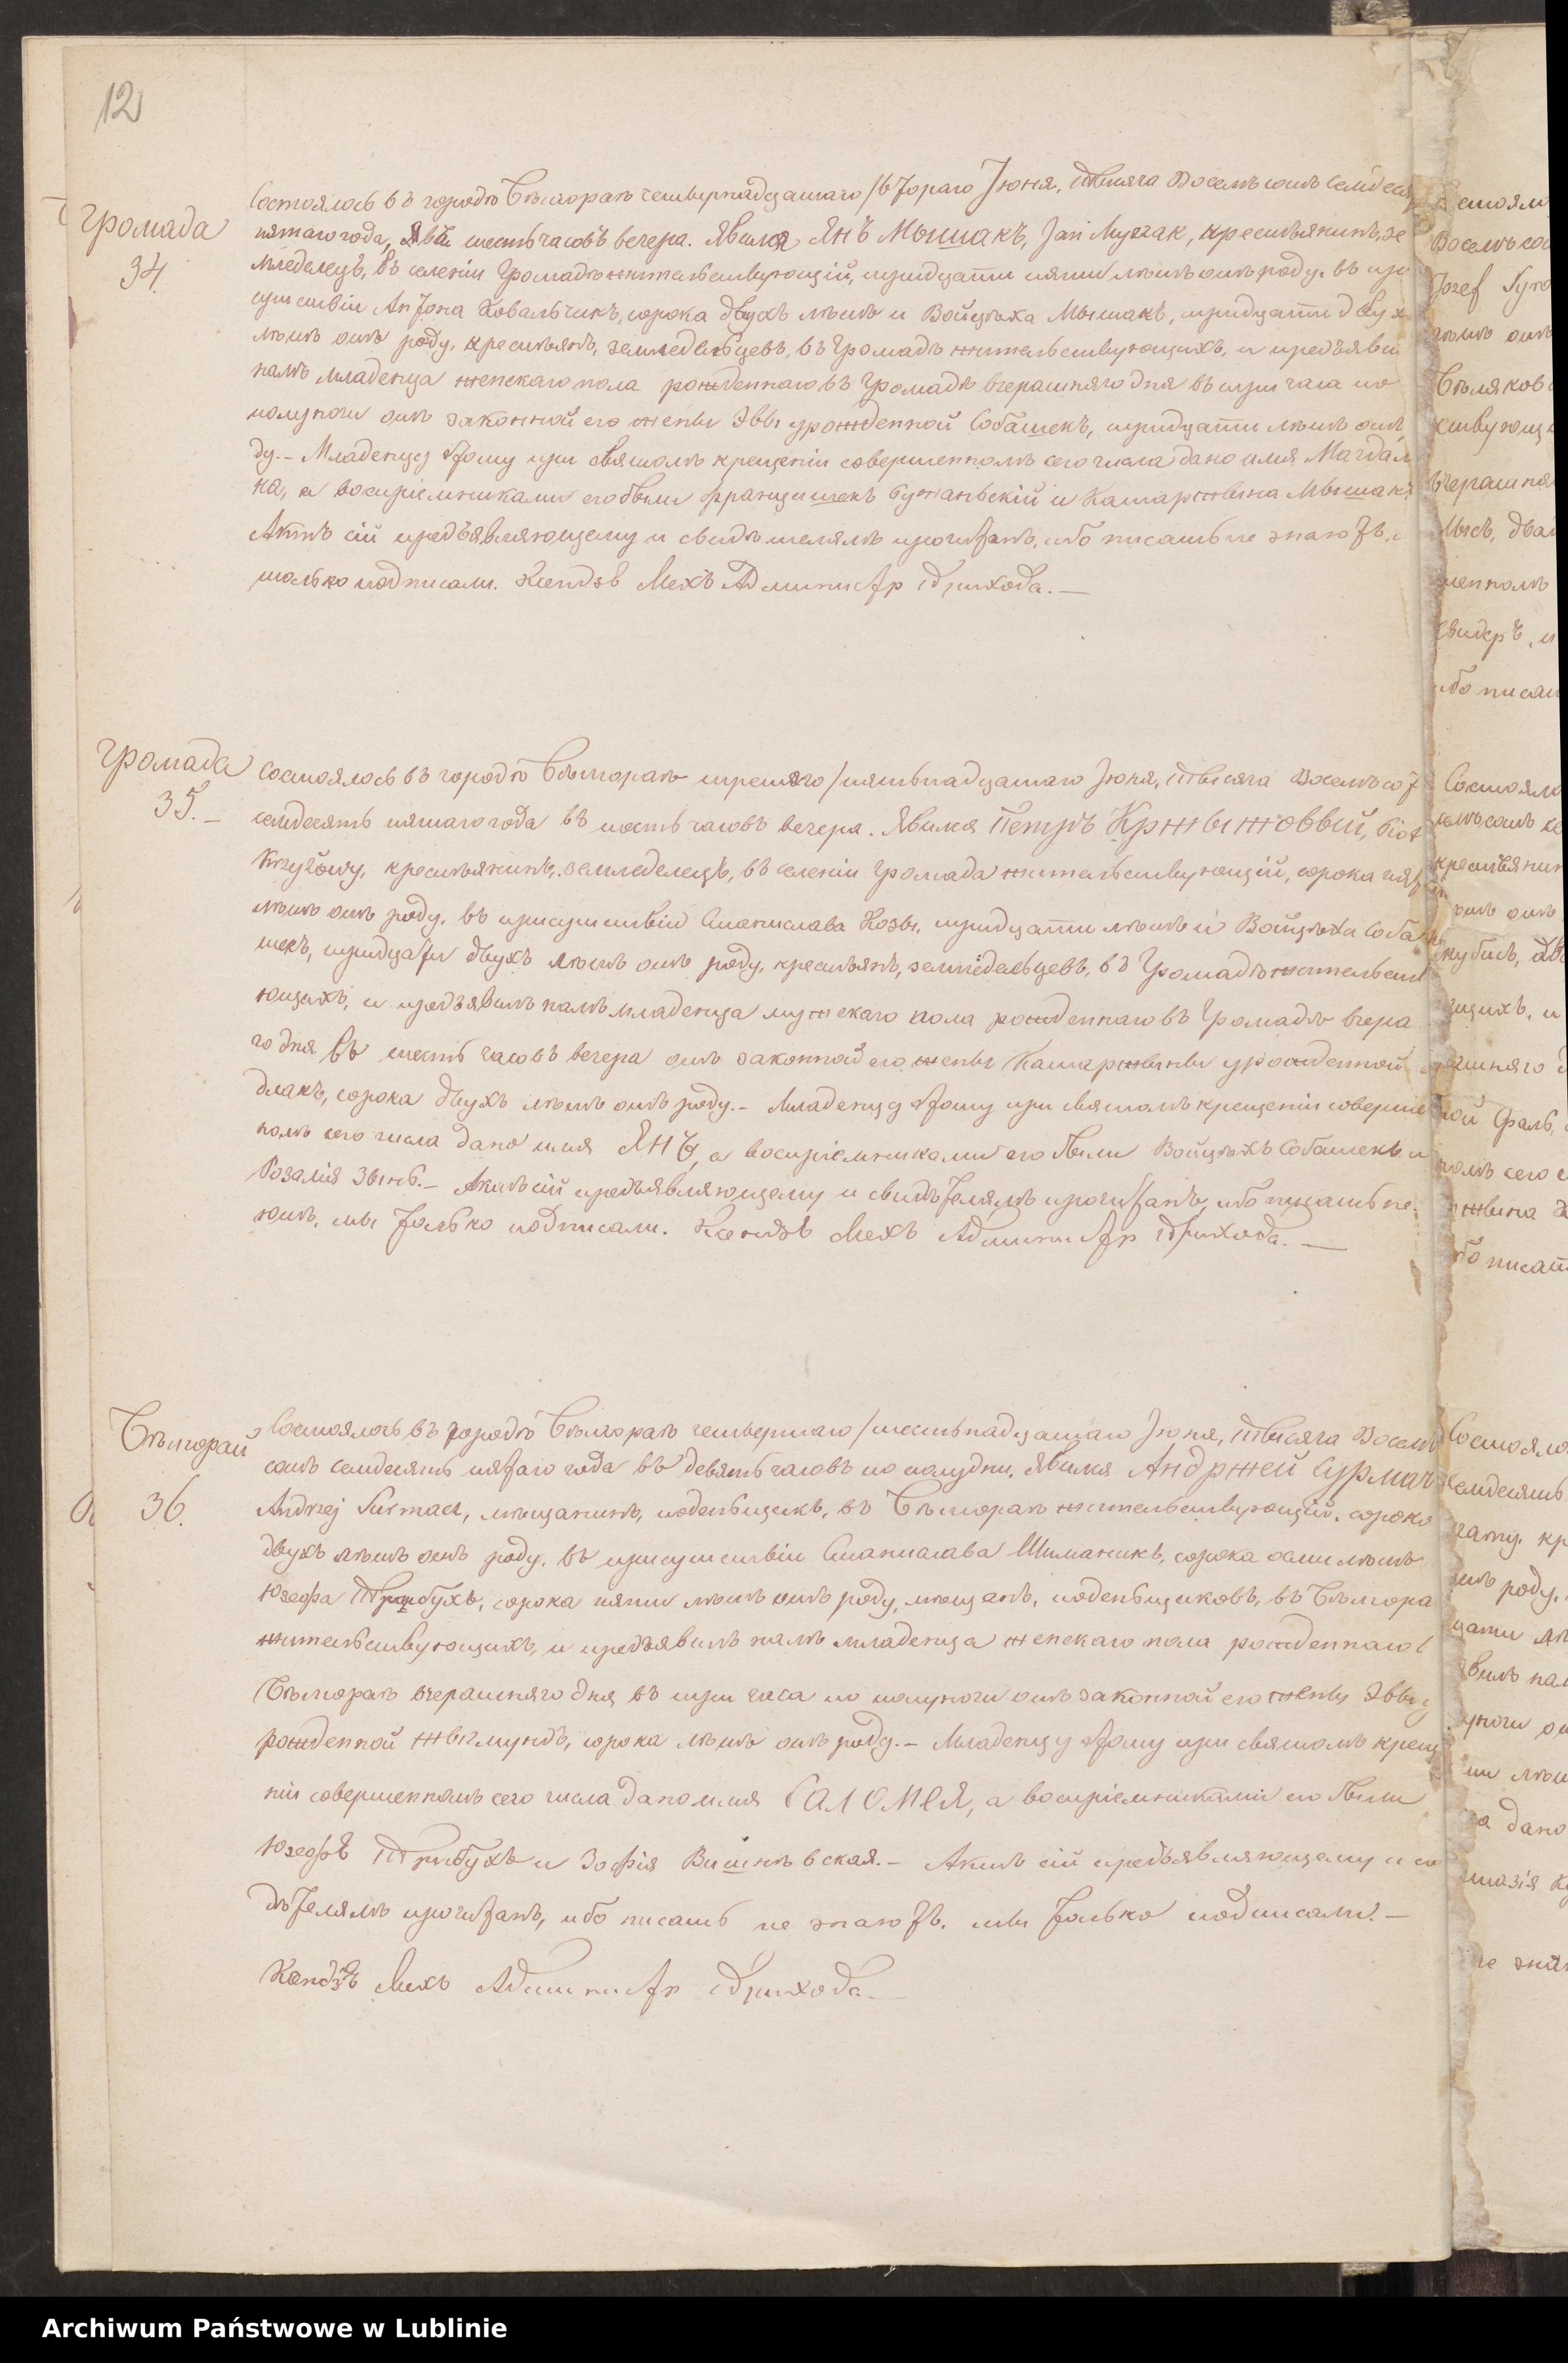 12
Громада
34.
Состоялось въ городѣ Бѣлгораѣ четвернадцатаго/втораго Іюня, тысяча восемьсотъ семдеся
пятаго года, въ шесть часовъ вечера. Явился Янъ Мышакъ, Jan Myszak, крестьянинъ, зе
мледелецъ, въ селеніи Громадѣ жительствующій, тридцати пяти лѣтъ отъ роду, въ при
сутствіи Антона Ковальчикъ, сорока двухъ лѣтъ и Войцѣха Мышакъ, тридцати двух
лѣтъ отъ роду, крестьянъ, земледѣльцевъ, въ Громадѣ жительствующихъ, и предъяви
намъ младенца женскаго пола рожденнаго въ Громадѣ вчерашняго дня въ три часа по
полуночи отъ законной его жены Эвы урожденной Собашекъ, тридцати лѣтъ отъ
ду. – Младенцу этому при святомъ крещеніи совершенномъ сего числа дано имя Магдал
на, а воспріемниками его были Францишекъ и Катаржина Мышакъ
Актъ сій предъявляющему и свидѣтелямъ прочитанъ, ибо писать не знаютъ,
только подписали. Ксендзъ Мехъ Администр Прихода. —
Громада
35. –
Состоялось въ городѣ Бѣлгораѣ третяго/пятьнадцатаго Іюня, тысяча восемьсот
семдесять пятаго года въ шесть часовъ вечера. Явился Петръ Кржыжовый, Piotr
Krzyżowy, крестьянинъ, земледелецъ, въ селеніи Громада жительствующій, сорока пят
лѣтъ отъ роду, въ присутствіи Станислава Козы, тридцати лѣтъ и Войцѣха Соба
шекъ, тридцати двухъ лѣтъ отъ роду, крестьянъ, земледѣльцевъ, въ Громадѣ жительств
ющихъ, и предъявилъ намъ младенца мужескаго пола рожденнаго въ Громадѣ вчера
го дня въ шесть часовъ вечера отъ законной его жены Катаржины урожденной
длакъ, сорока двухъ лѣтъ отъ роду. – Младенцу этому при святомъ крещеніи соверше
номъ сего числа дано имя Янъ, а воспріемниками его были Войцѣхъ Собашекъ и
Розалія Звинь. – Актъ сій предъявляющему и свидѣтелямъ прочитанъ, ибо писать не
ютъ, мы только подписали. Ксендзъ Мехъ Администр Прихода. —
Бѣлгорай
36.
Состоялось въ городѣ Бѣлгораѣ четвертаго/шестьнадцатаго Іюня, тысяча восемь
сотъ семдесять пятаго года въ девять часовъ по полудни, Явился Андржей Сурмачъ
Andrzej Surmacz, мѣщанинъ, поденьщикъ, въ Бѣлгораѣ жительствующій, сорока
двухъ лѣтъ отъ роду, въ присутствіи Станислава Шиманикъ, сорока осми лѣтъ
Юзефа Прибухъ, сорока пяти лѣтъ отъ роду, мѣщанъ, поденьщиковъ, въ Бѣлгора
жительствующихъ, и предъявилъ намъ младенца женскаго пола рожденнаго в
Бѣлгораѣ вчерашняго дня въ три часа по полуночи отъ законной его жены Эвы у
рожденной Жыгмундъ, сорока лѣтъ отъ роду. – Младенцу этому при святомъ креще
ніи совершенномъ сего числа дано имя Саломея, а воспріемниками его были
Юзефъ Прибухъ и Зофія Вишнѣвская. – Актъ сій предъявляющему и сви
дѣтелямъ прочитанъ, ибо писать не знаютъ, мы только подписали. –
Ксендзъ Мехъ Администр Прихода. —
Archiwum Państwowe w Lublinie